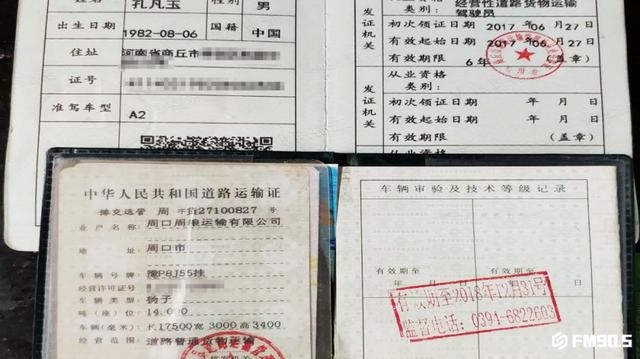 孔凡玉
男
出生日期
国籍
1982-08-06
中国
住址
河南省商丘市
证号
准驾车型
A2
发证机关
经营性道路货物运输
驾驶员
初次领证日期 2017年06月27日
有效起始日期 2017年06月27日
有效期限 6年 (盖章)
发证机关
从业资格
类别
初次领证日期 年 月 日
有效起始日期 年 月 日
有效期限 (盖章)
从业资格
中华人民共和国道路运输证
豫交运管 周 字 27100827号
业户名称 周口周顺运输有限公司
地址 周口市
车辆号牌 豫P8J55挂
经营许可证号
车辆类型 杨子
吨(座)位 14.000
车辆(毫米) 长17500宽3000高3400
经营范围 道路普通货物运输
车辆审验及技术等级记录
有效期
至 年 月
有效期
至 年
有效期至2018年12月31号
监督电话:0394-6822603
FM90.5